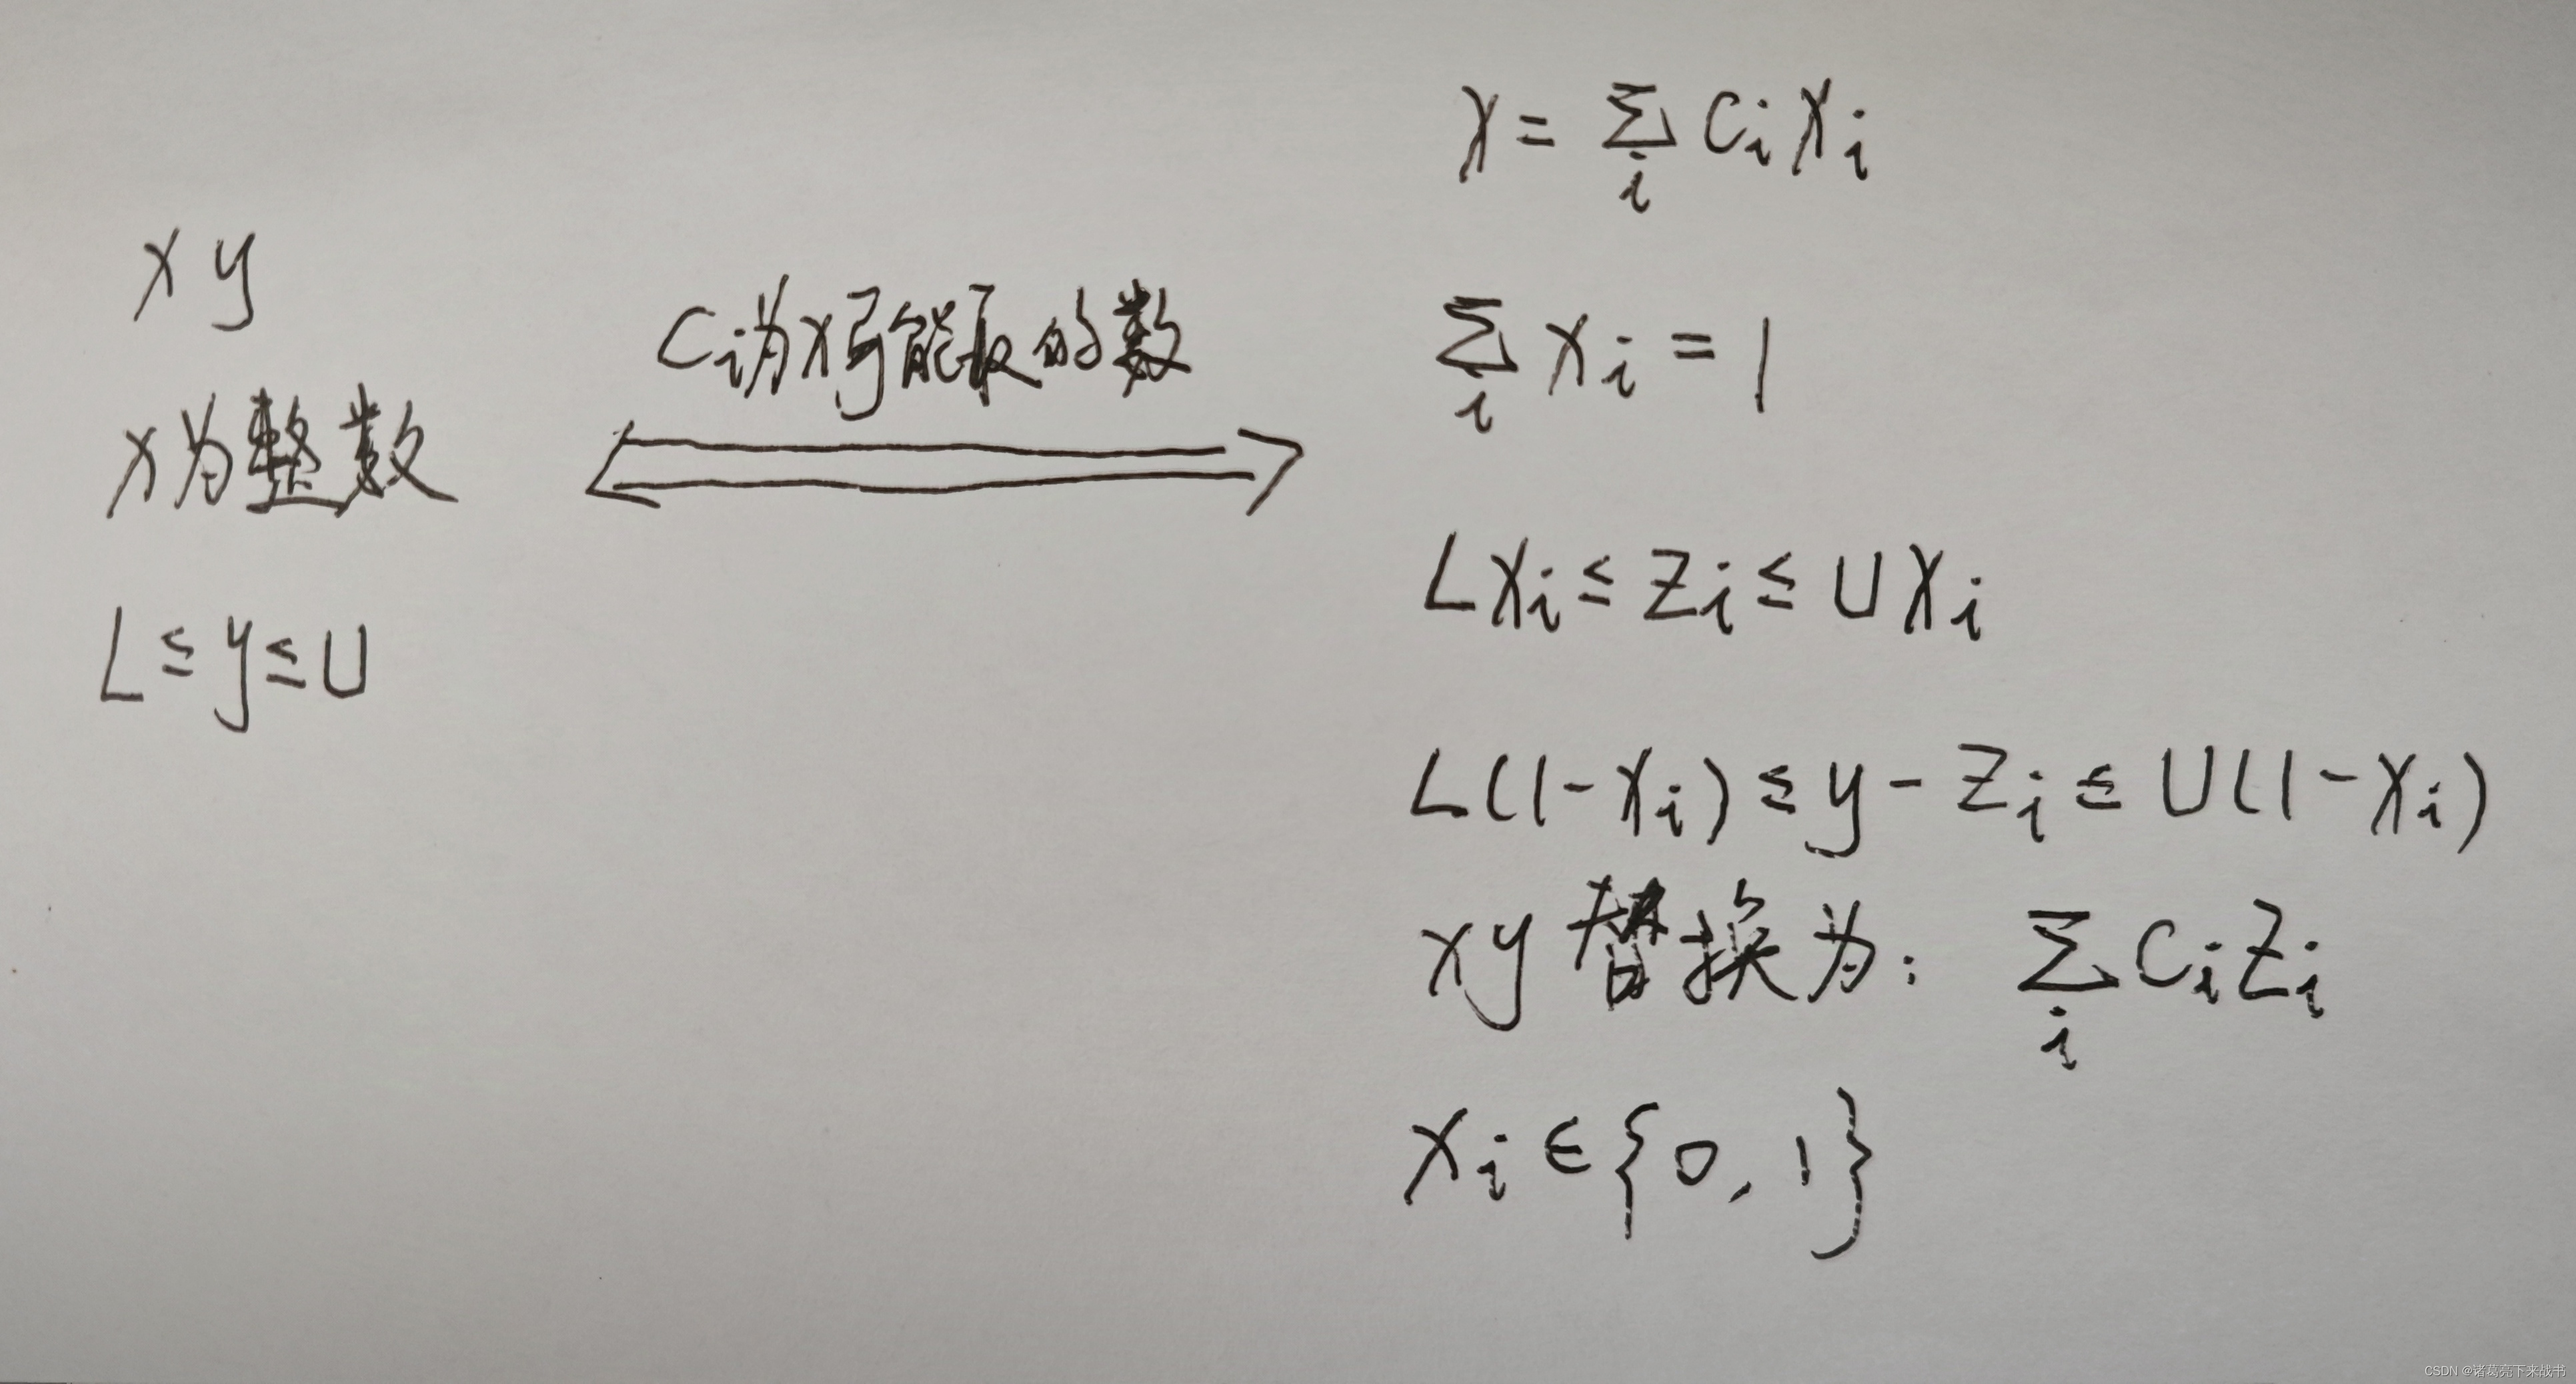 xy
x为整数
L≤y≤U
Ci为x可能取的数
x=∑i Cixi
∑i xi=1
Lxi≤Zi≤Uxi
L(1-xi)≤y-Zi≤U(1-xi)
xy替换为：∑i CiZi
xi∈{0,1}
CSDN @诸葛亮下来战书